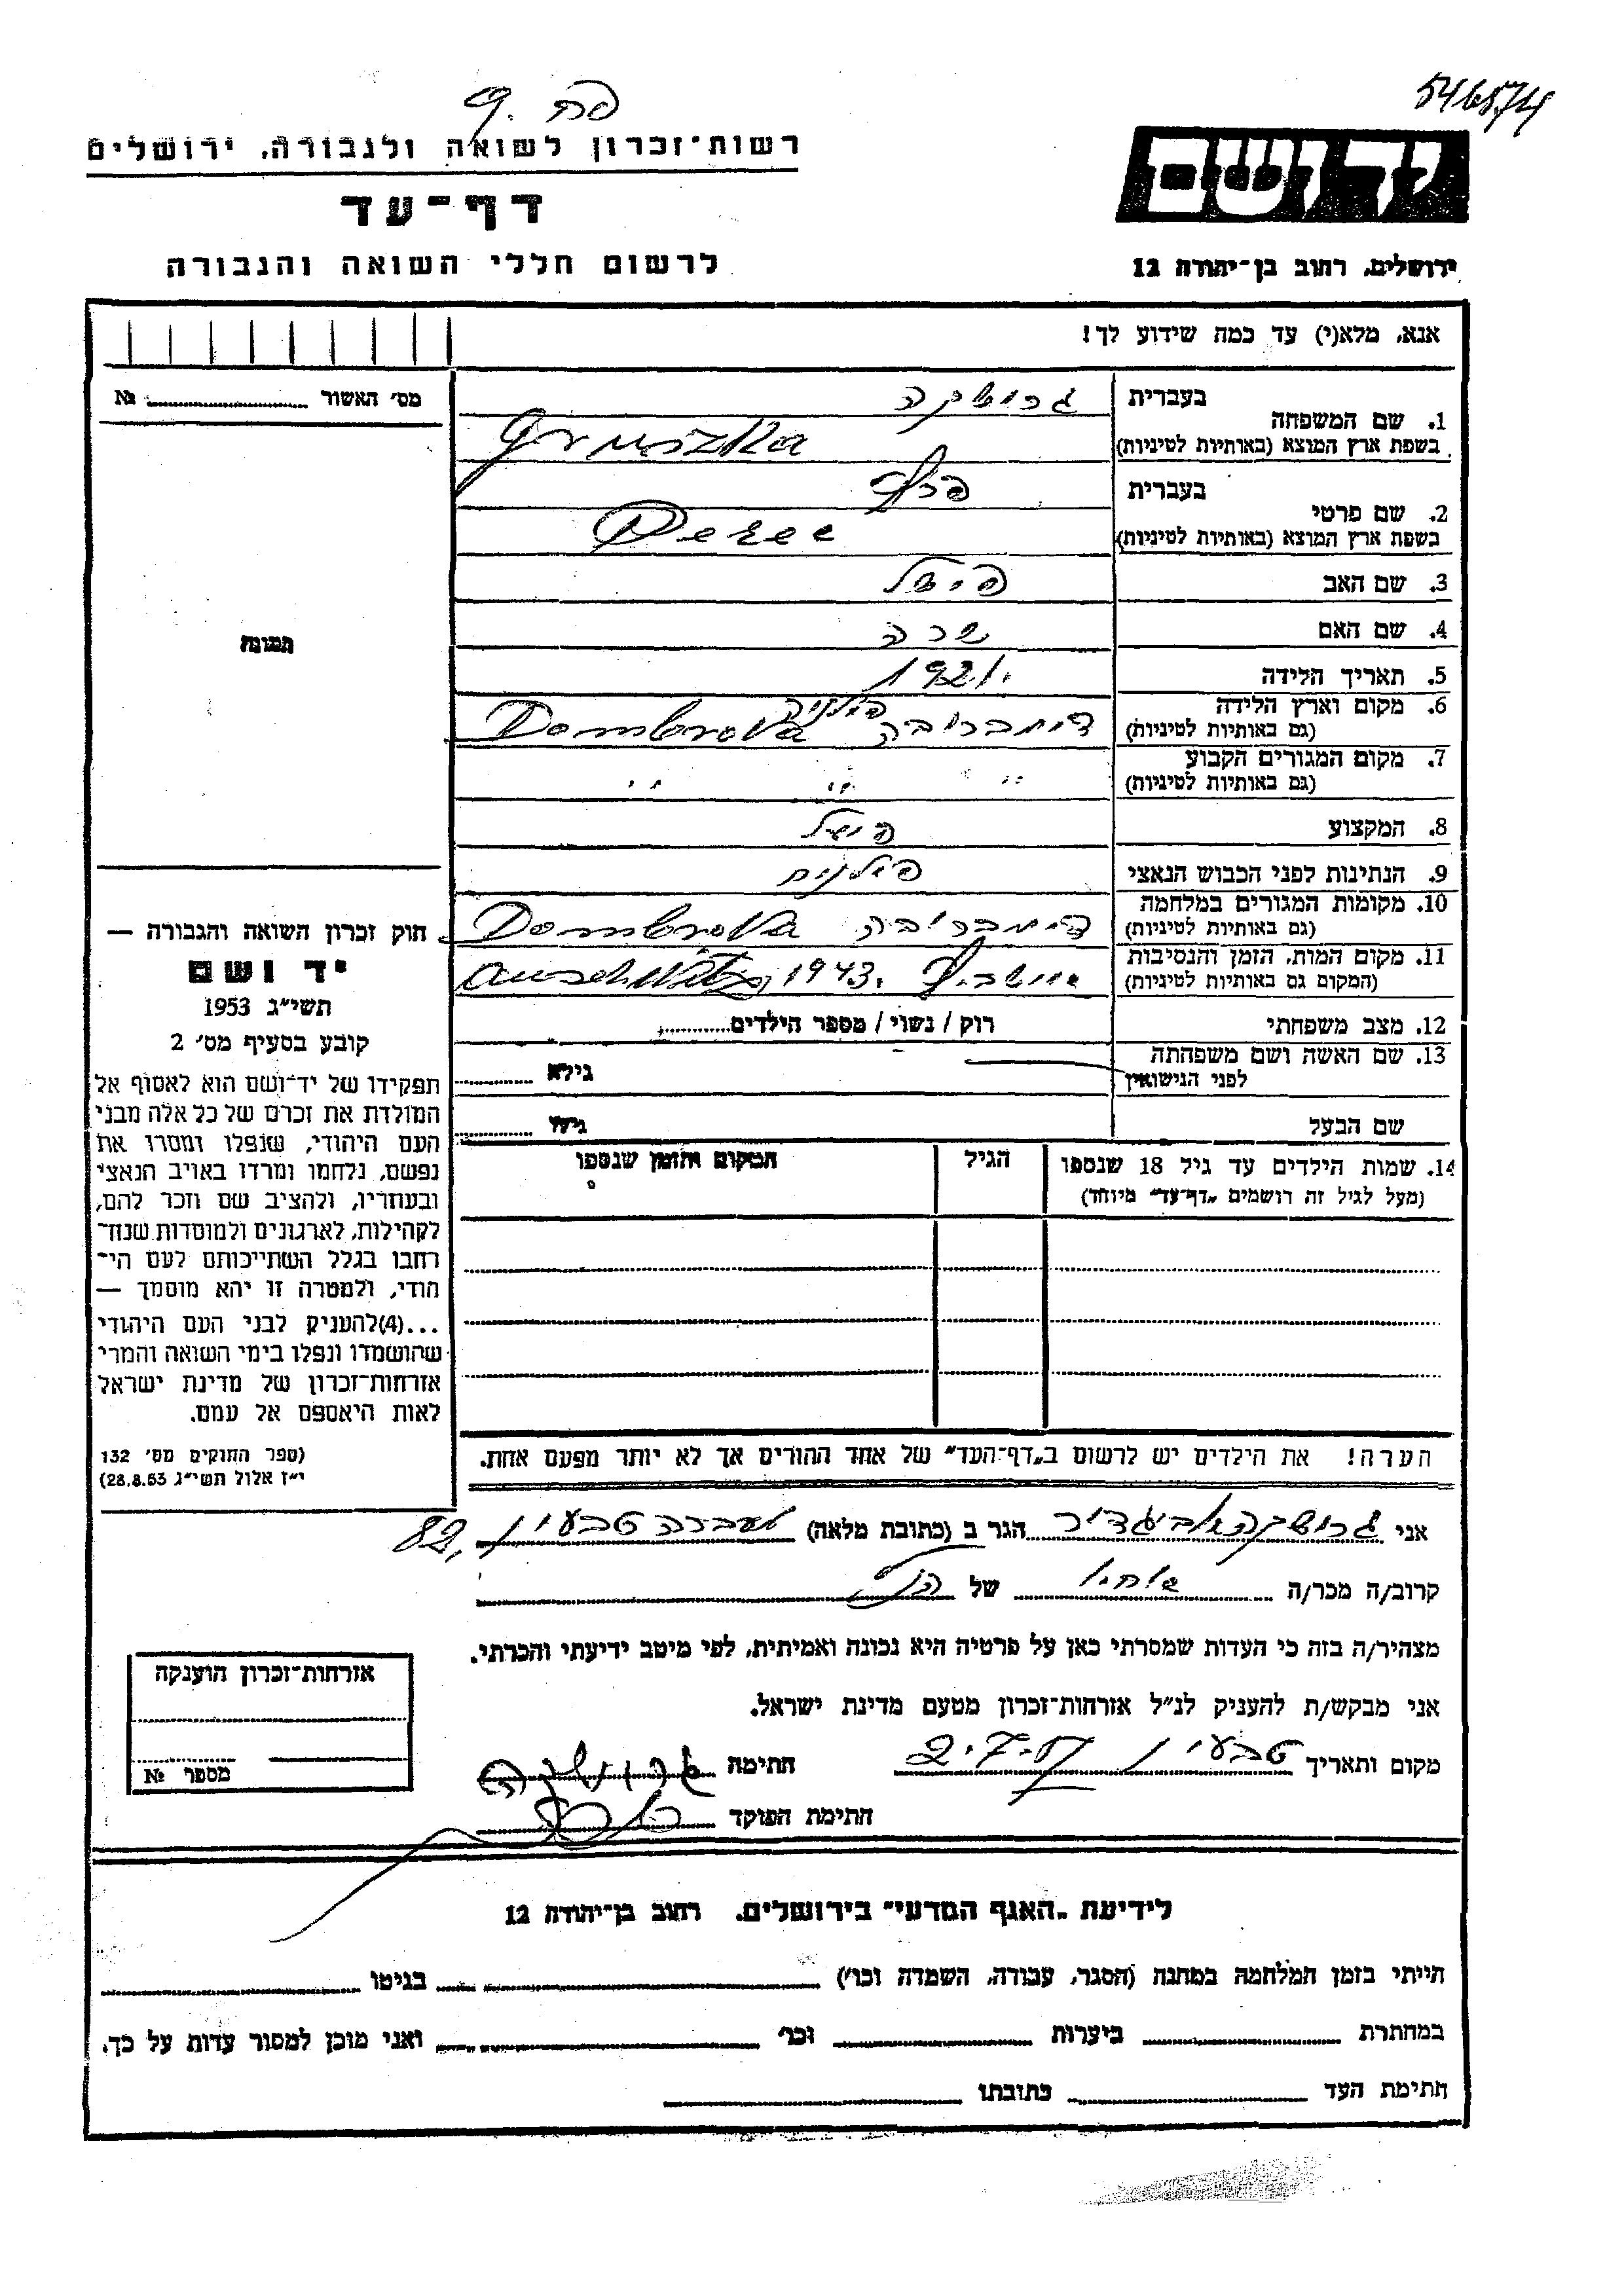 546574
רשות־זכרון לשואה ולגבורה, ירושלים
דף־עד
לרשום חללי השואה והגבורה
יד ושם
ירושלים, רחוב בן־יהודה 12
אנא, מלא(י) עד כמה שידוע לך!
מס׳ האשור № 
בעברית
גרושקה
1. שם המשפחה
בשפת ארץ המוצא (באותיות לטיניות)
Gruszka
בעברית
פרץ
2. שם פרטי
בשפת ארץ המוצא (באותיות לטיניות)
Perec
3. שם האב
פישל
4. שם האם
שרה
5. תאריך הלידה
1921.
6. מקום וארץ הלידה
(גם באותיות לטיניות)
דומברובה פולניה Dombrova
7. מקום המגורים הקבוע
(גם באותיות לטיניות)
״ ״ ״
8. המקצוע
9. הנתינות לפני הכבוש הנאצי
פולנית
10. מקומות המגורים במלחמה
(גם באותיות לטיניות)
דומברובה Dombrova
11. מקום המות, הזמן והנסיבות
(המקום גם באותיות לטיניות)
אושביץ 1943. Auschwitz
12. מצב משפחתי
רוק / נשוי / מספר הילדים
13. שם האשה ושם משפחתה
לפני הנישואין
גילה
שם הבעל
גילו
14. שמות הילדים עד גיל 18 שנספו
(מעל לגיל זה רושמים „דף־עד״ מיוחד)
הגיל
המקום והזמן שנספו
הערה! את הילדים יש לרשום ב„דף־העד״ של אחד ההורים אך לא יותר מפעם אחת.
תמונה
חוק זכרון השואה והגבורה —
יד ושם
תשי״ג 1953
קובע בסעיף מס׳ 2
תפקידו של יד־ושם הוא לאסוף אל
המולדת את זכרם של כל אלה מבני
העם היהודי, שנפלו ומסרו את
נפשם, נלחמו ומרדו באויב הנאצי
ובעוזריו, ולהציב שם וזכר להם,
לקהילות, לארגונים ולמוסדות שנח־
רחבו בגלל השתייכותם לעם הי־
הודי, ולמטרה זו יהא מוסמך —
...(4)להעניק לבני העם היהודי
שהושמדו ונפלו בימי השואה והמרי
אזרחות־זכרון של מדינת ישראל
לאות היאספם אל עמם.
(ספר החוקים מס׳ 132
י״ז אלול תשי״ג 28.8.53)
אני גרושקה אביגדור הגר ב (כתובת מלאה) מעברה טבעון 82,
קרוב/ה מכר/ה אחיו של הנ״ל
מצהיר/ה בזה כי העדות שמסרתי כאן על פרטיה היא נכונה ואמיתית, לפי מיטב ידיעתי והכרתי.
אני מבקש/ת להעניק לנ״ל אזרחות־זכרון מטעם מדינת ישראל.
מקום ותאריך טבעון 2.7.57 חתימה גרושקה
חתימת הפוקד
אזרחות־זכרון הוענקה
מספר №
לידיעת „האגף המדעי״ בירושלים. רחוב בן־יהודה 12
הייתי בזמן המלחמה במחנה (הסגר, עבודה, השמדה וכו׳) בגיטו
במחתרת ביערות וכו׳ ואני מוכן למסור עדות על כך.
חתימת העד כתובתו